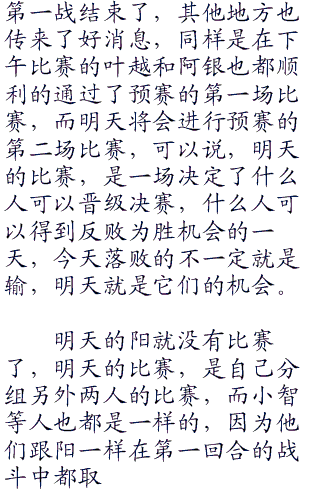 第一战结束了，其他地方也
传来了好消息，同样是在下
午比赛的叶越和阿银也都顺
利的通过了预赛的第一场比
赛，而明天将会进行预赛的
第二场比赛，可以说，明天
的比赛，是一场决定了什么
人可以晋级决赛，什么人可
以得到反败为胜机会的一
天，今天落败的不一定就是
输，明天就是它们的机会。
明天的阳就没有比赛
了，明天的比赛，是自己分
组另外两人的比赛，而小智
等人也都是一样的，因为他
们跟阳一样在第一回合的战
斗中都取